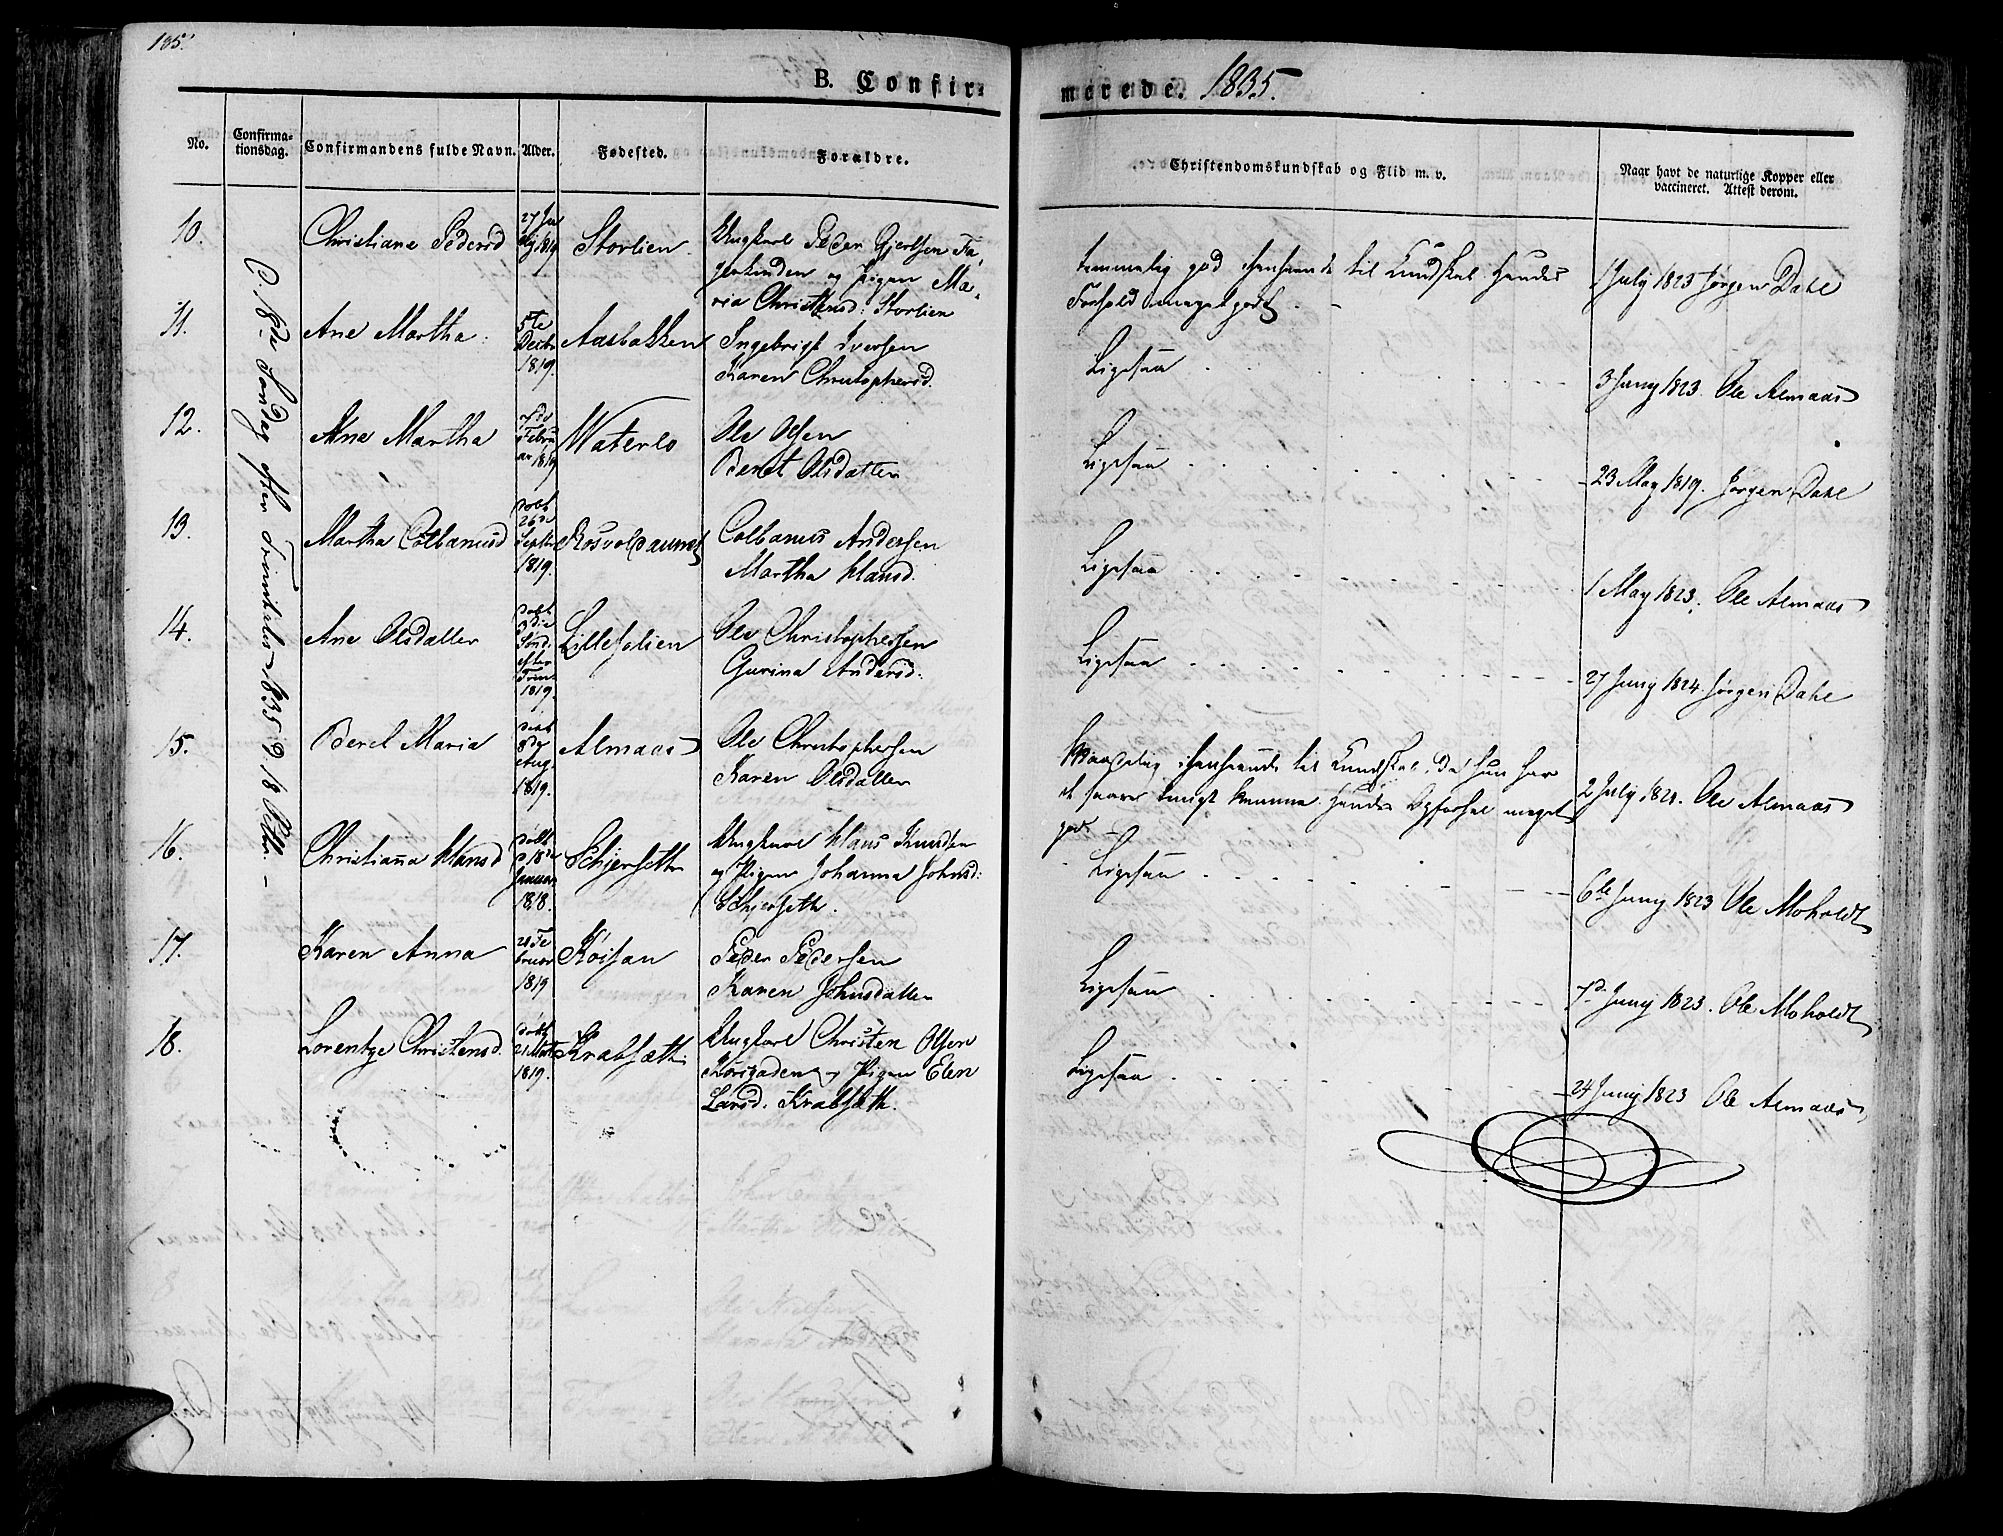 185.
B. Confir-
marede. 1835.
No.
Confirma-
tionsdag.
Confirmandens fulde Navn.
Alder.
Fødested.
Forældre.
Christendomskundskab og Flid m. v.
Naar havt de naturlige Kopper eller
vaccineret. Attest derom.
D. 18de Søndag efter Trinitatis 1835 d. 18 Octbr. -
10.
Christiane Pedersd
27 Ju
lij 1819
Storlien
Ungkarl Peder Gjertsen Fa-
gerlinden og Pigen Ma-
ria Christensd: Storlien
temmelig god Henseende til Kundskab. Hendes
Forhold meget godt. -
1 July 1823 Jørgen Dahl
11.
Ane Martha.
5te
Decbr
1819.
Aasbakken
Ingebrigt Iversen
Karen Christophersd.
Ligesaa
3 Juny 1823. Ole Almaas
12.
Ane Martha
7de
Febru
ar 1819
Waterlo
Ole Olsen
Beret Olsdatter
Ligesaa
23 May 1819. Jørgen Dahl
13.
Martha Colbanusd
døbt
26de
Septbr
1819.
Rosvoldaunet
Colbanus Andersen
Martha Hansd.
Ligesaa
1 May 1823. Ole Almaas
14.
Ane Olsdatter
døbt
Sønd.
efter
Trin.
1819.
Lillefolien
Ole Christophersen
Gurina Andersd.
Ligesaa
27 Juny 1824. Jørgen Dahl
15.
Beret Maria
døbt
8de
Aug.
1819.
Almaas
Ole Christophersen
Karen Olsdatter
Maadelig i Henseende til Kundskab, da hun har
et saare tungt Nemme. Hendes Opførsel meget
god -
2 July 1821. Ole Almaas
16.
Christianna Hansd
døbt
d 18de
Januar
1818.
Schjerseth
Ungkarl Hans Knudsen
og Pigen Johanna Johnsd:
Schjerseth.
Ligesaa
6te Juny 1823 Ole Moholdt
17.
Karen Anna
21 Fe
bruar
1819
Koisan
Peder Pedersen
Karen Johnsdatter
Ligesaa
7d. Juny 1823. Ole Moholdt
18.
Lorentze Christensd.
døbt
21 Mart
1819.
Krabsæth
Ungkarl Christen Olsen
og Pigen Elen
Larsd. Krabsæth.
Ligesaa
24 Juny 1823 Ole Almaas